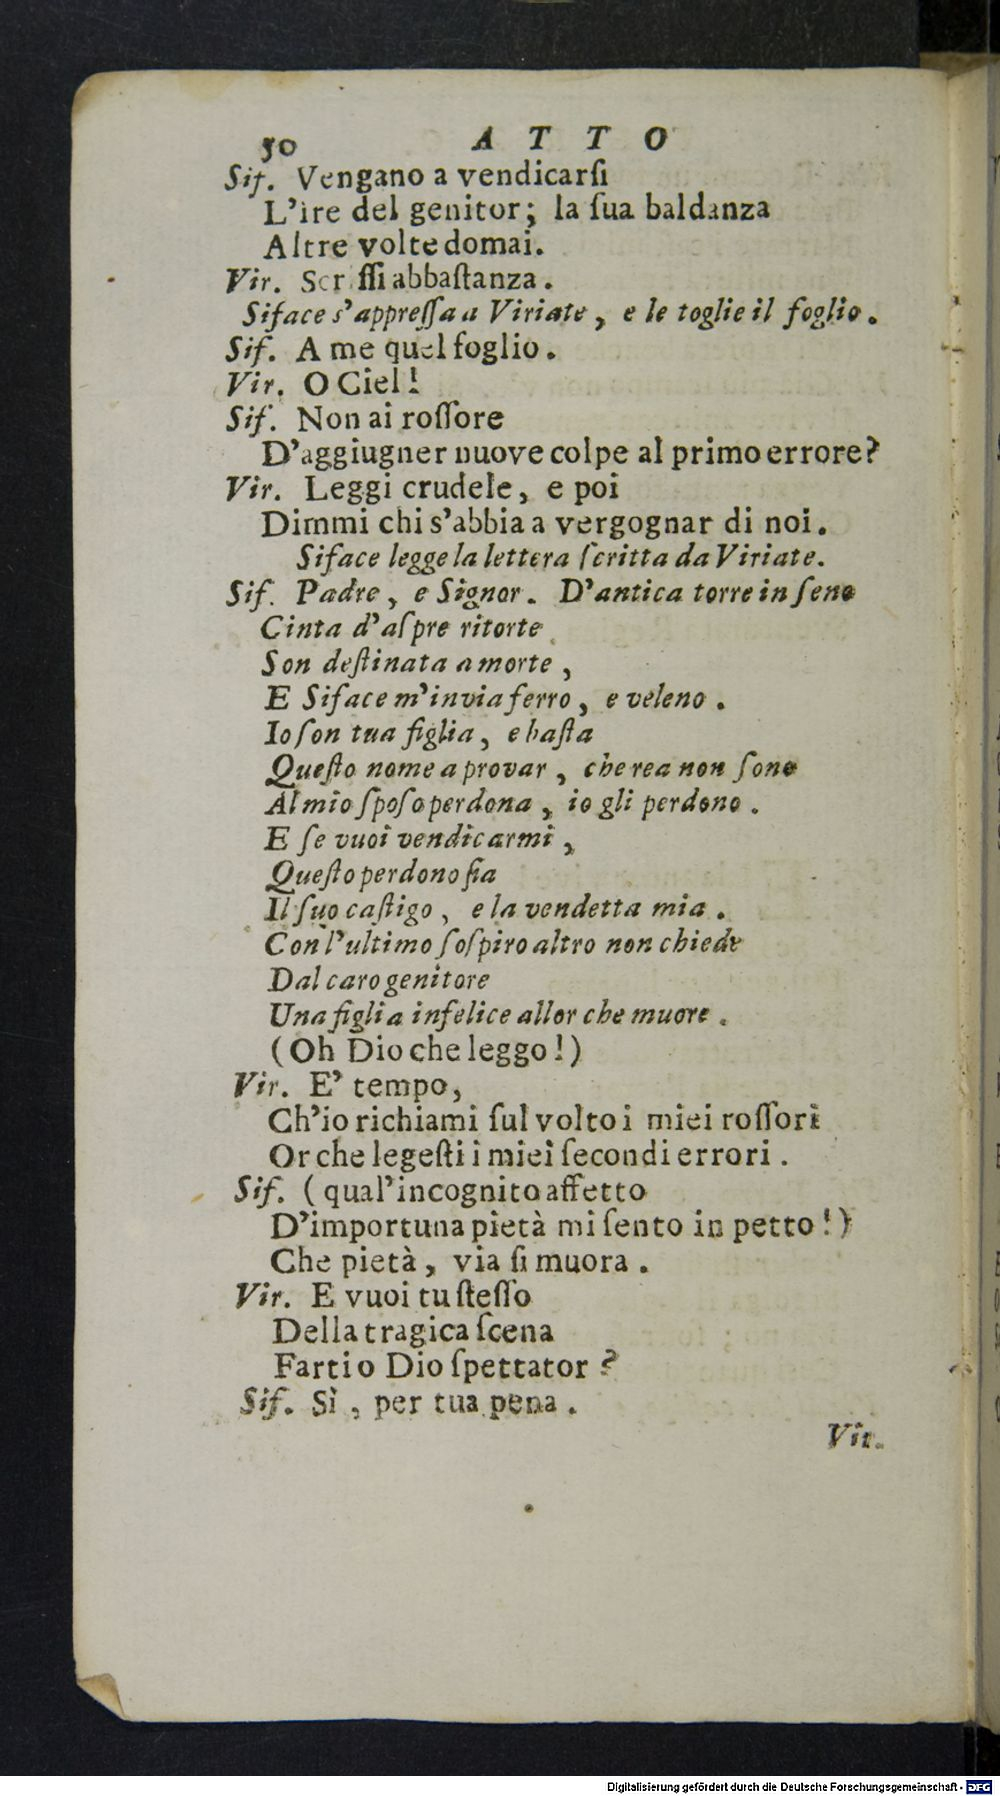 50 ATTO
Sif. Vengano a vendicarſi
L'ire del genitor; la ſua baldanza
Altre volte domai.
Vir. Scr ſſi abbaſtanza.
Siface s'appreſſa a Viriate, e le toglie il foglio.
Sif. A me quel foglio.
Vir. O Ciel!
Sif. Non ai roſſore
D'aggiugner nuove colpe al primo errore?
Vir. Leggi crudele, e poi
Dimmi chi s'abbia a vergognar di noi.
Siface legge la lettera ſcritta da Viriate.
Sif. Padre, e Signor. D'antica torre in ſeno
Cinta d'aſpre ritorte
Son deſtinata a morte,
E Siface m'invia ferro, e veleno.
Io ſon tua figlia, e baſta
Queſto nome a provar, che rea non ſono
Al mio ſpoſo perdona, io gli perdono.
E ſe vuoi vendicarmi,
Queſto perdono fia
Il ſuo caſtigo, e la vendetta mia.
Con l'ultimo ſoſpiro altro non chiede
Dal caro genitore
Una figlia infelice allor che muore.
(Oh Dio che leggo!)
Vir. E' tempo,
Ch'io richiami ſul volto i miei roſſori
Or che legeſti i miei ſecondi errori.
Sif. (qual'incognito affetto
D'importuna pietà mi ſento in petto!)
Che pietà, via ſi muora.
Vir. E vuoi tu ſteſſo
Della tragica ſcena
Farti o Dio ſpettator?
Sif. Sì, per tua pena.
Vir.
Digitalisierung gefördert durch die Deutsche Forschungsgemeinschaft - DFG